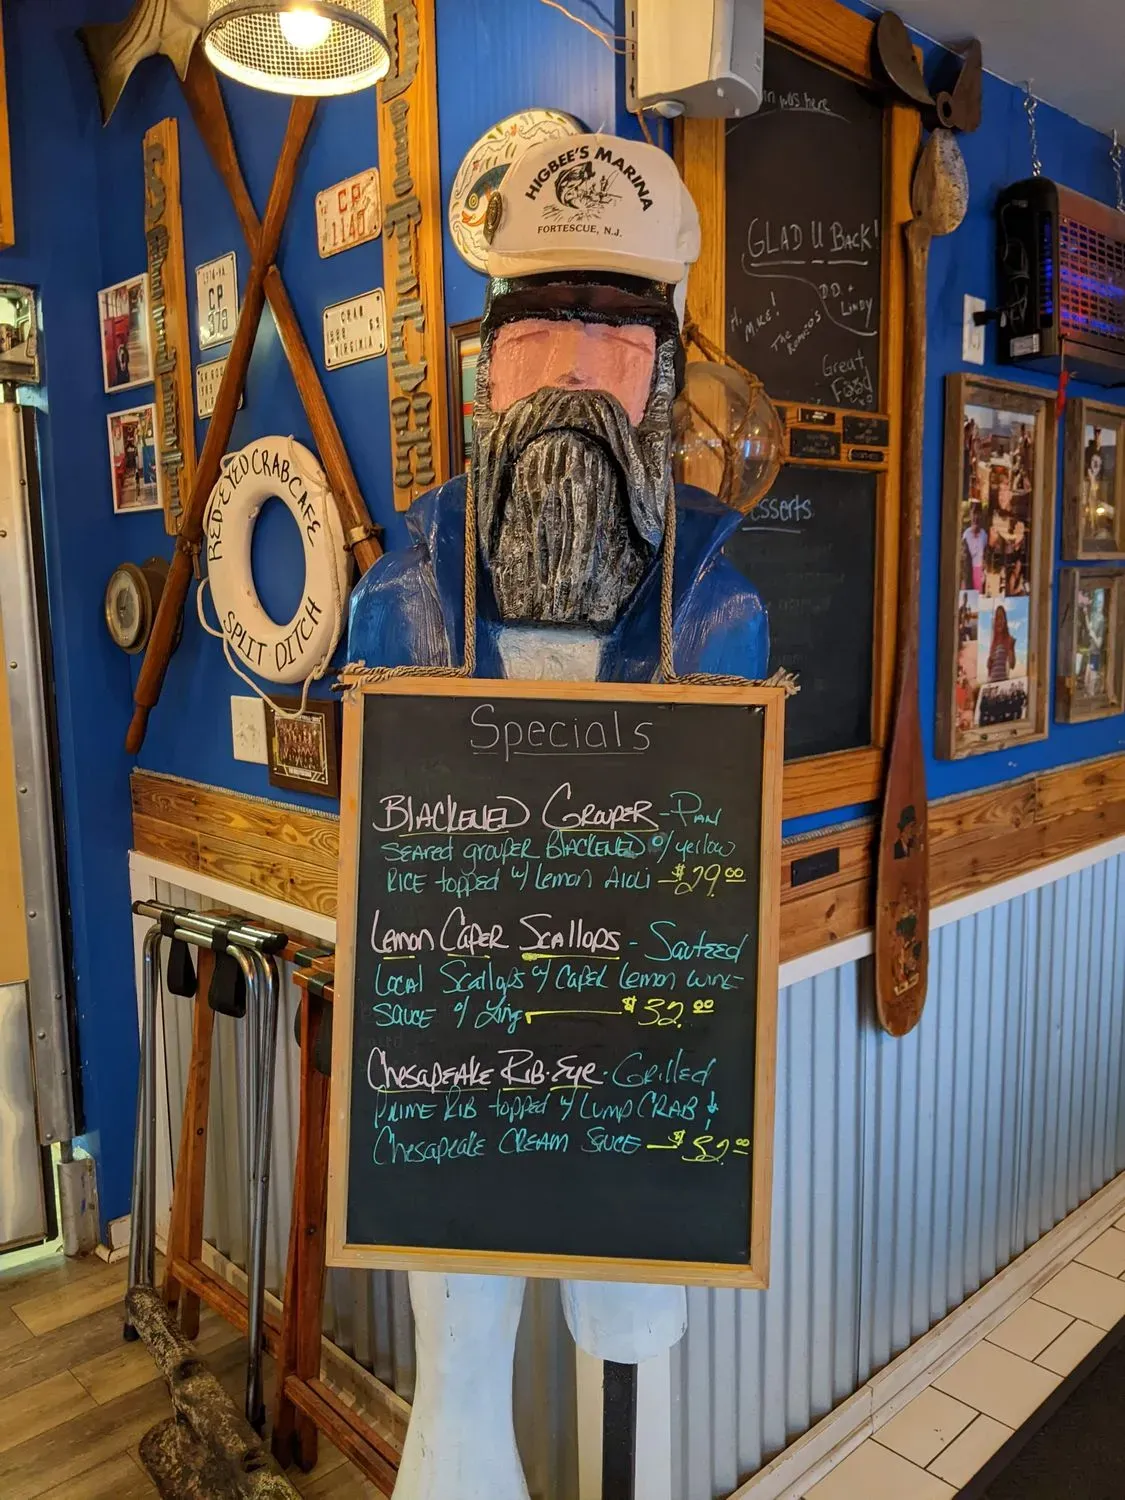 HIGBEE'S MARINA
FORTESCUE, N.J.
CP
1140
CP
379
CRAB
1888 63
VIRGINIA
RED EYED CRAB CAFE
SPLIT DITCH
in was here
GLAD U BACK!
DD +
Lindy
Hi,
MIKE!
The
Romeo's
Great
Food
esserts
Specials
BLACKENED GROUPER - PAN
SEARED grouper BLACKENED w/ yellow
RICE topped w/ Lemon AIOLI - $29.00
Lemon CAPER SCALLOPS - SAUTEED
LOCAL SCALLOPS w/ CAPER Lemon WINE
SAUCE w/ Ling $32.00
CHESAPEAKE RIB-EYE - GRILLED
PRIME RIB topped w/ LUMP CRAB &
CHESAPEAKE CREAM SAUCE - $32.00